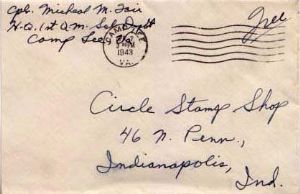 Cpl. Micheal M. Fair
H.Q. 1st Q.M. Sch. Regt
Camp Lee Va.
CAMP LEE
PM
1943
VA.
Free
Circle Stamp Shop
46 N. Penn.,
Indianapolis,
Ind.